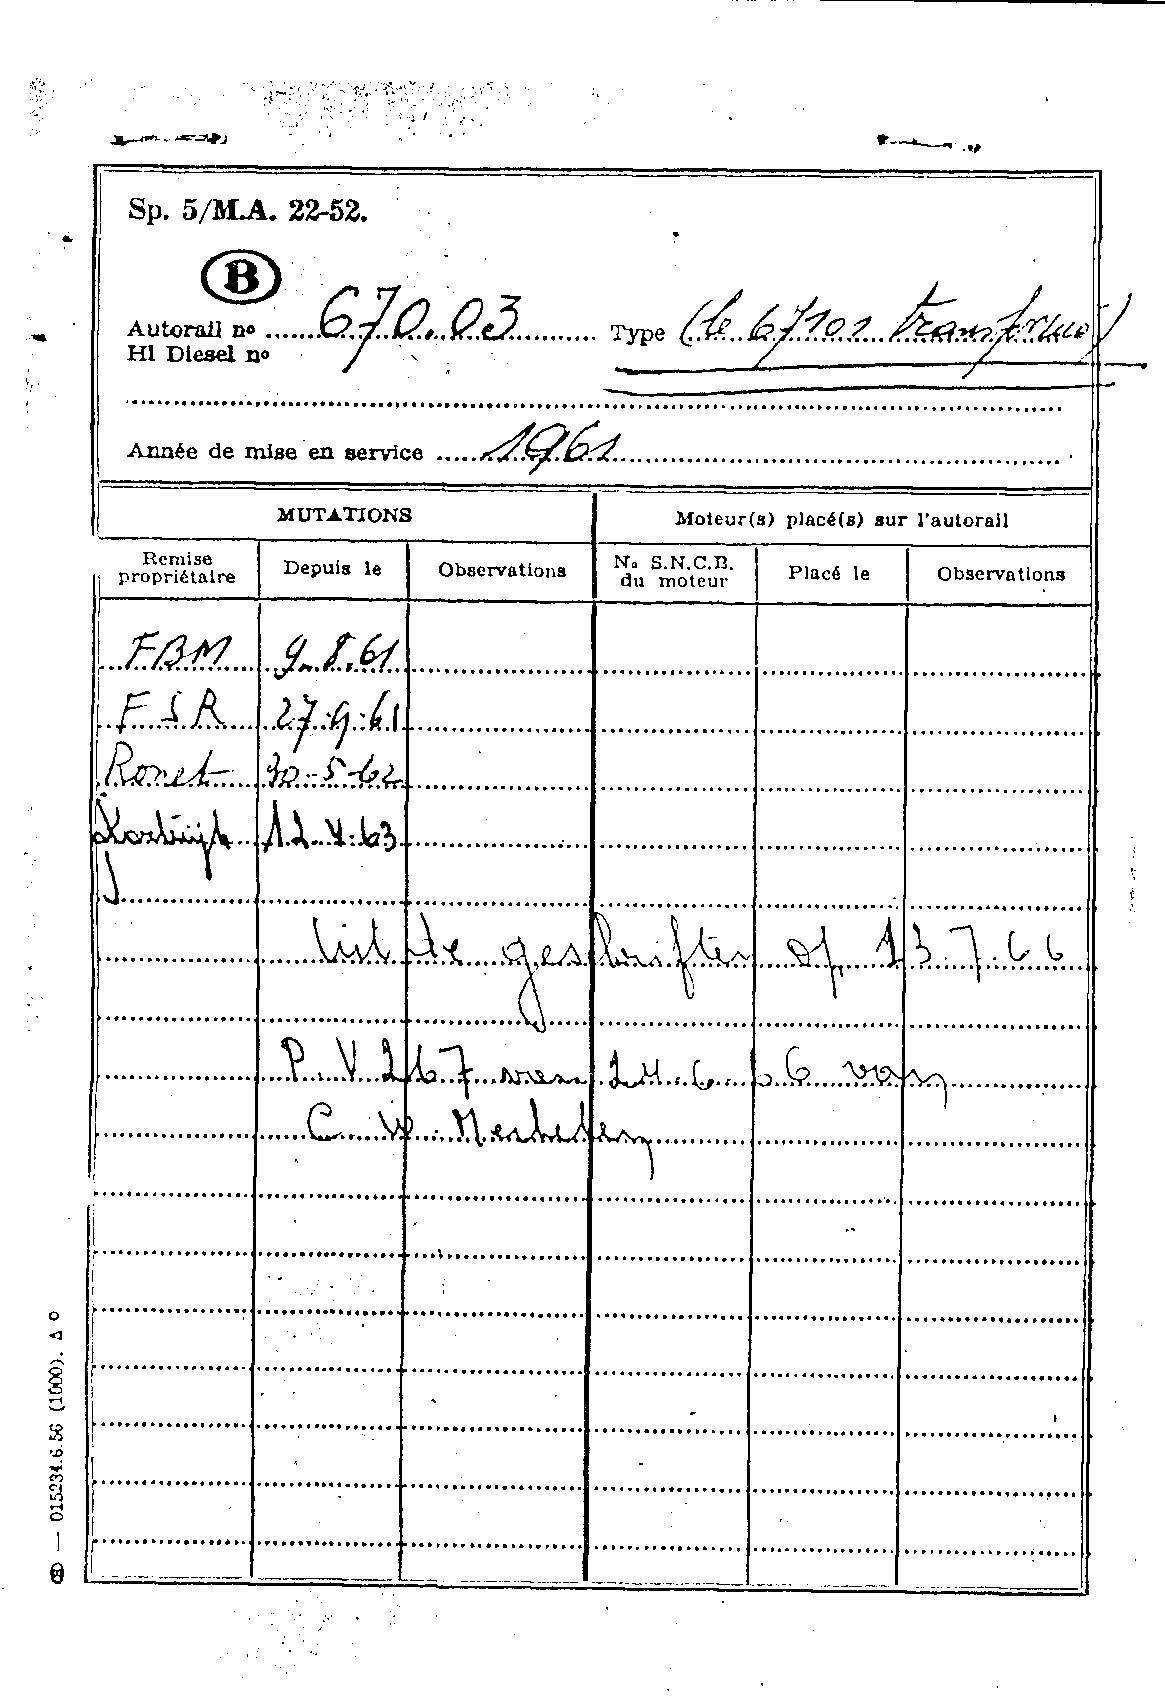 Sp. 5/M.A. 22-52.
B
Autorail nº 670.03 Type (le 67101 transformé)
Hl Diesel nº
Année de mise en service 1961
MUTATIONS Moteur(s) placé(s) sur l'autorail
Remise propriétaire Depuis le Observations No S.N.C.B. du moteur Placé le Observations
FBM 9.8.61
FSR 27.9.61
Ronet 30-5-62
Kortrijk 12.4.63
Uit de geschriften op 13.7.66
P.V 267 van 24.6.66 van
C.W. Mechelen
B — 015234.6.56 (1000). Δ O